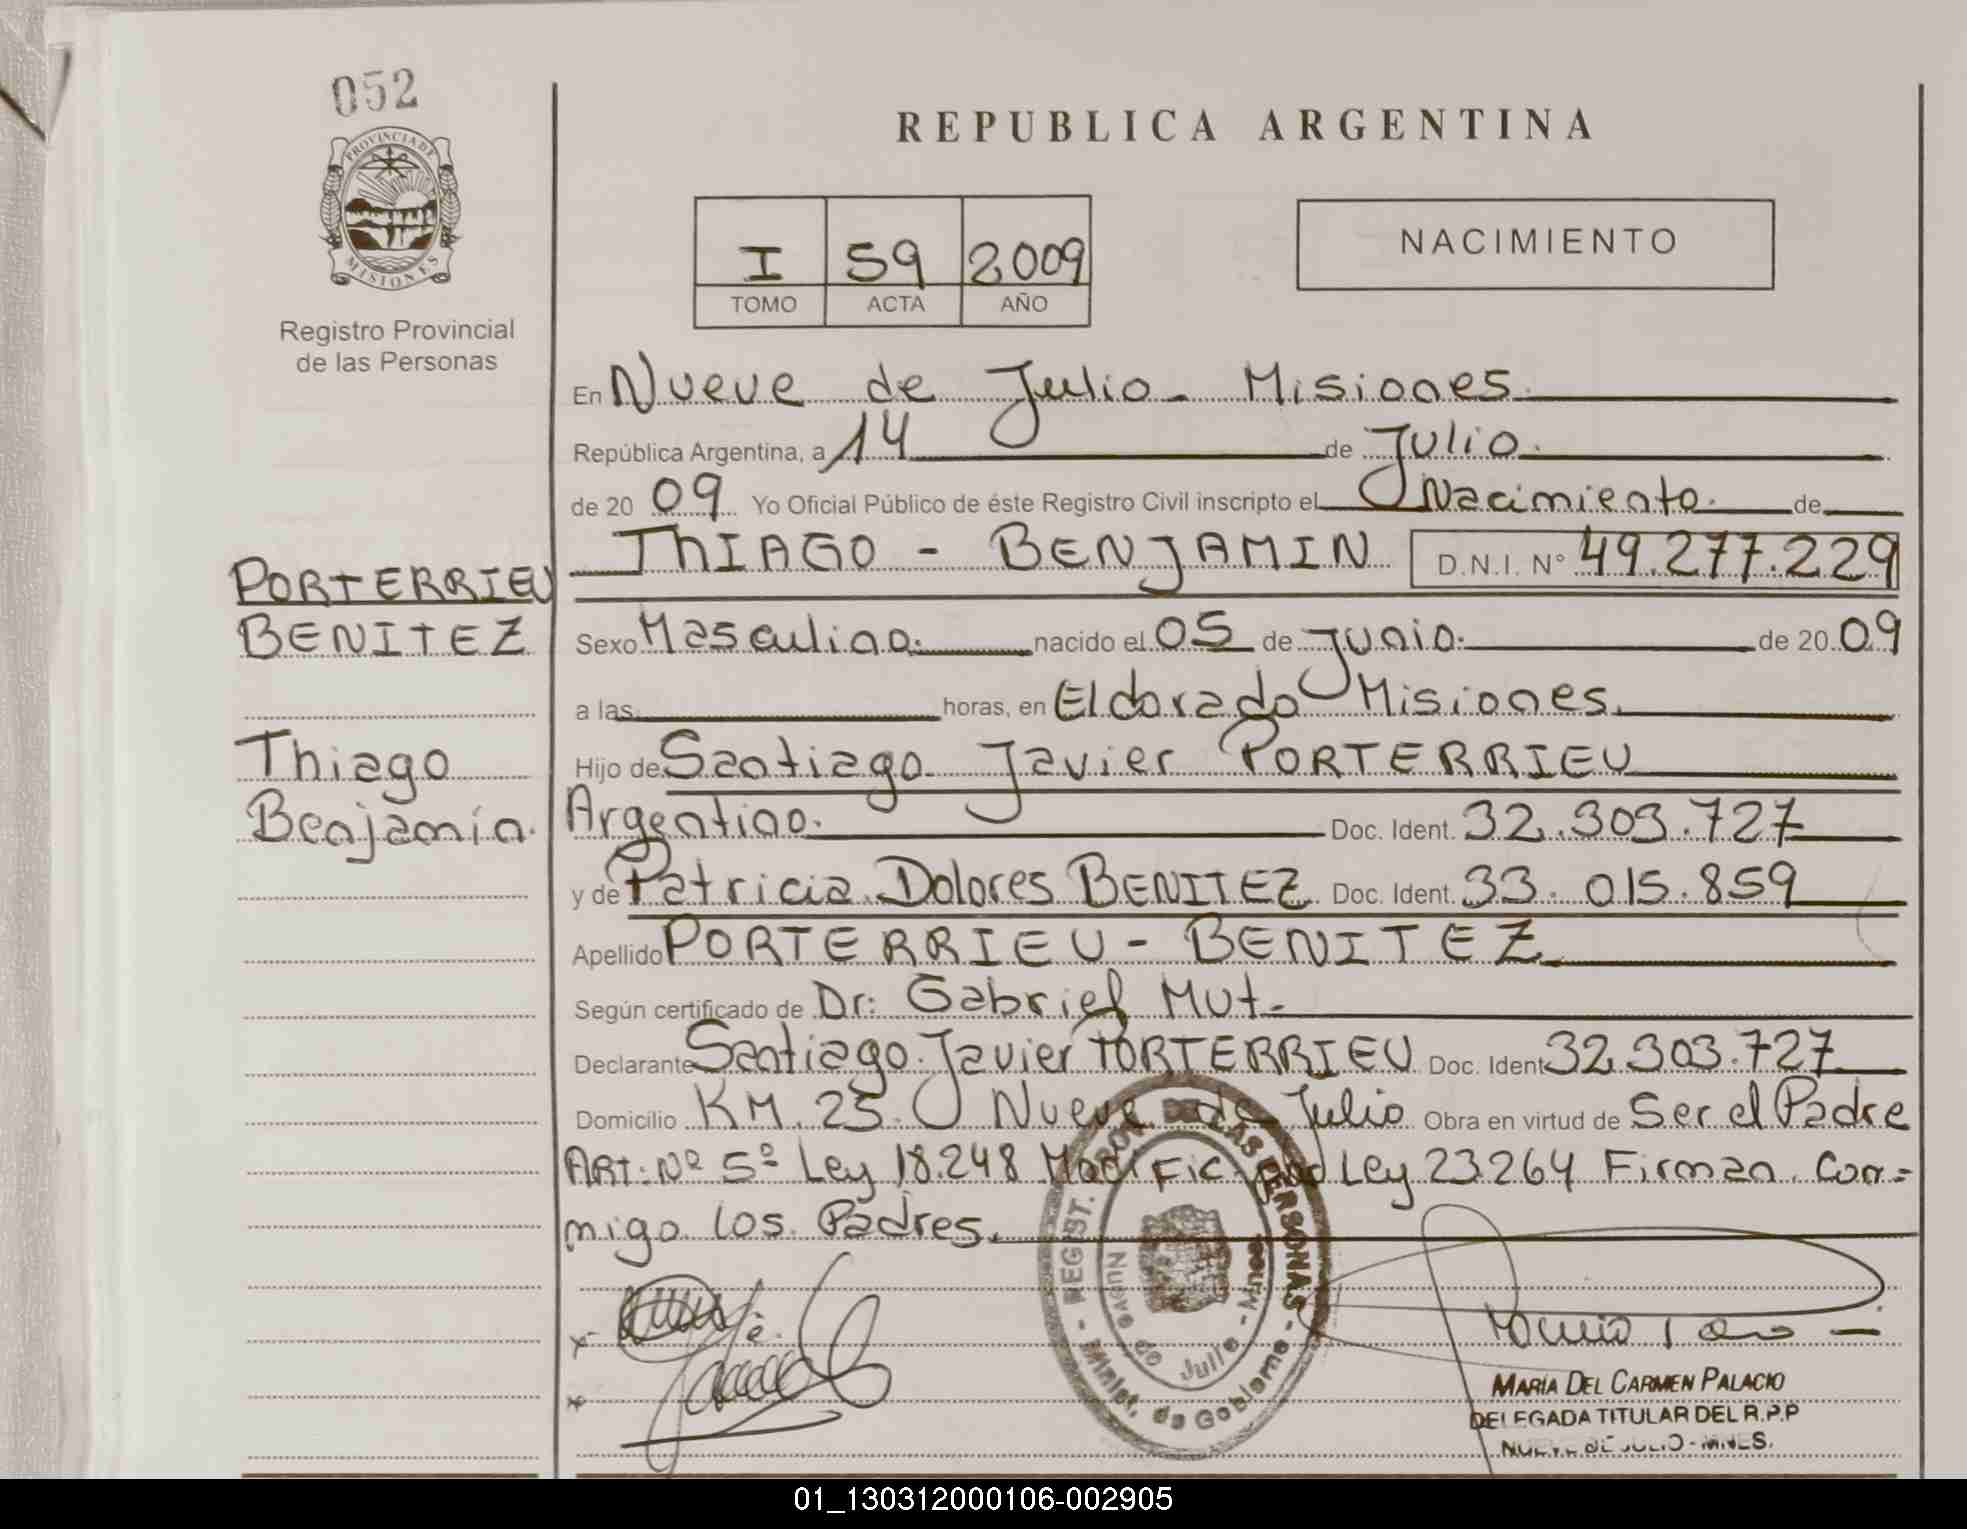 052
PROVINCIA DE
MISIONES
Registro Provincial
de las Personas
REPUBLICA ARGENTINA
I 59 2009
TOMO ACTA AÑO
NACIMIENTO
En Nueve de Julio - Misiones.
República Argentina, a 14 de Julio.
de 20 09 Yo Oficial Público de éste Registro Civil inscripto el Nacimiento. de
THIAGO - BENJAMIN D.N.I. Nº 49.277.229
PORTERRIEU
BENITEZ
Thiago
Benjamín.
Sexo Masculino. nacido el 05 de Junio. de 20 09
a las horas, en Eldorado Misiones.
Hijo de Santiago Javier PORTERRIEU
Argentino. Doc. Ident. 32.303.727
y de Patricia Dolores BENITEZ Doc. Ident. 33.015.859
Apellido PORTERRIEU - BENITEZ
Según certificado de Dr: Gabriel Mut.
Declarante Santiago Javier PORTERRIEU Doc. Ident 32.303.727
Domicilio KM. 25. Nueve de Julio Obra en virtud de Ser el Padre
ART: Nº 5º Ley 18.248 Modific. por Ley 23264 Firman. Con=
migo los Padres.
REGIST. PROV. DE LAS PERSONAS
Nueve de Julio - Mnes
- Minist. de Gobierno -
MARÍA DEL CARMEN PALACIO
DELEGADA TITULAR DEL R.P.P
NUEVE DE JULIO - MNES.
01_130312000106-002905